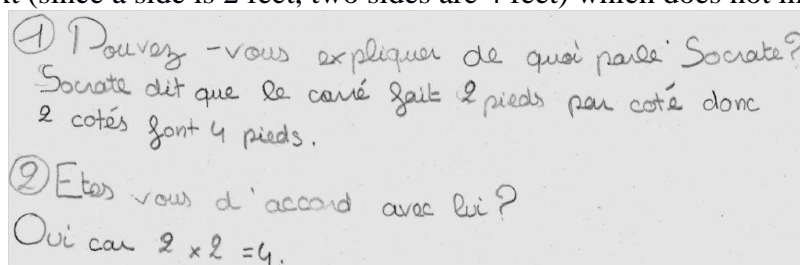 (since a side is 2 feet, two sides are 4 feet) which does not
① Pouvez-vous expliquer de quoi parle Socrate?
Socrate dit que le carré fait 2 pieds par coté donc
2 cotés font 4 pieds.
② Etes vous d'accord avec lui?
Oui car 2 x 2 = 4.